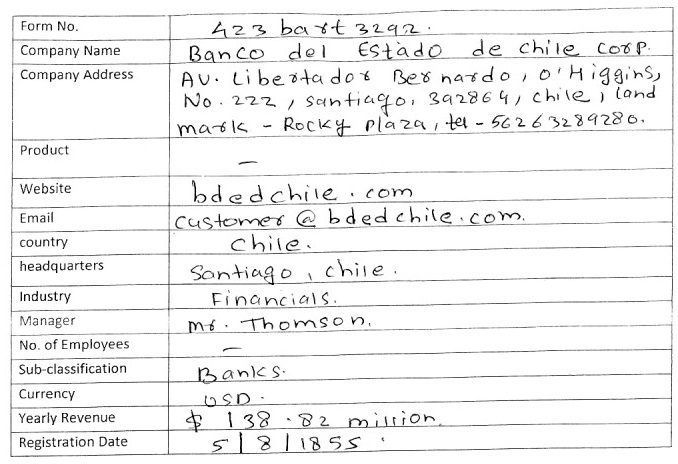 Form No. 423 bart 3292.
Company Name Banco del Estado de chile corp.
Company Address Av. Libertador Bernardo, O'Higgins,
No. 222, santiago, 392864, chile, land
mark - Rocky plaza, tel - 56263289280.
Product —
Website bdedchile.com
Email customer@bdedchile.com.
country chile.
headquarters Santiago, chile.
Industry Financials.
Manager mr. Thomson.
No. of Employees —
Sub-classification Banks.
Currency USD.
Yearly Revenue $ 138.82 million.
Registration Date 5/8/1855